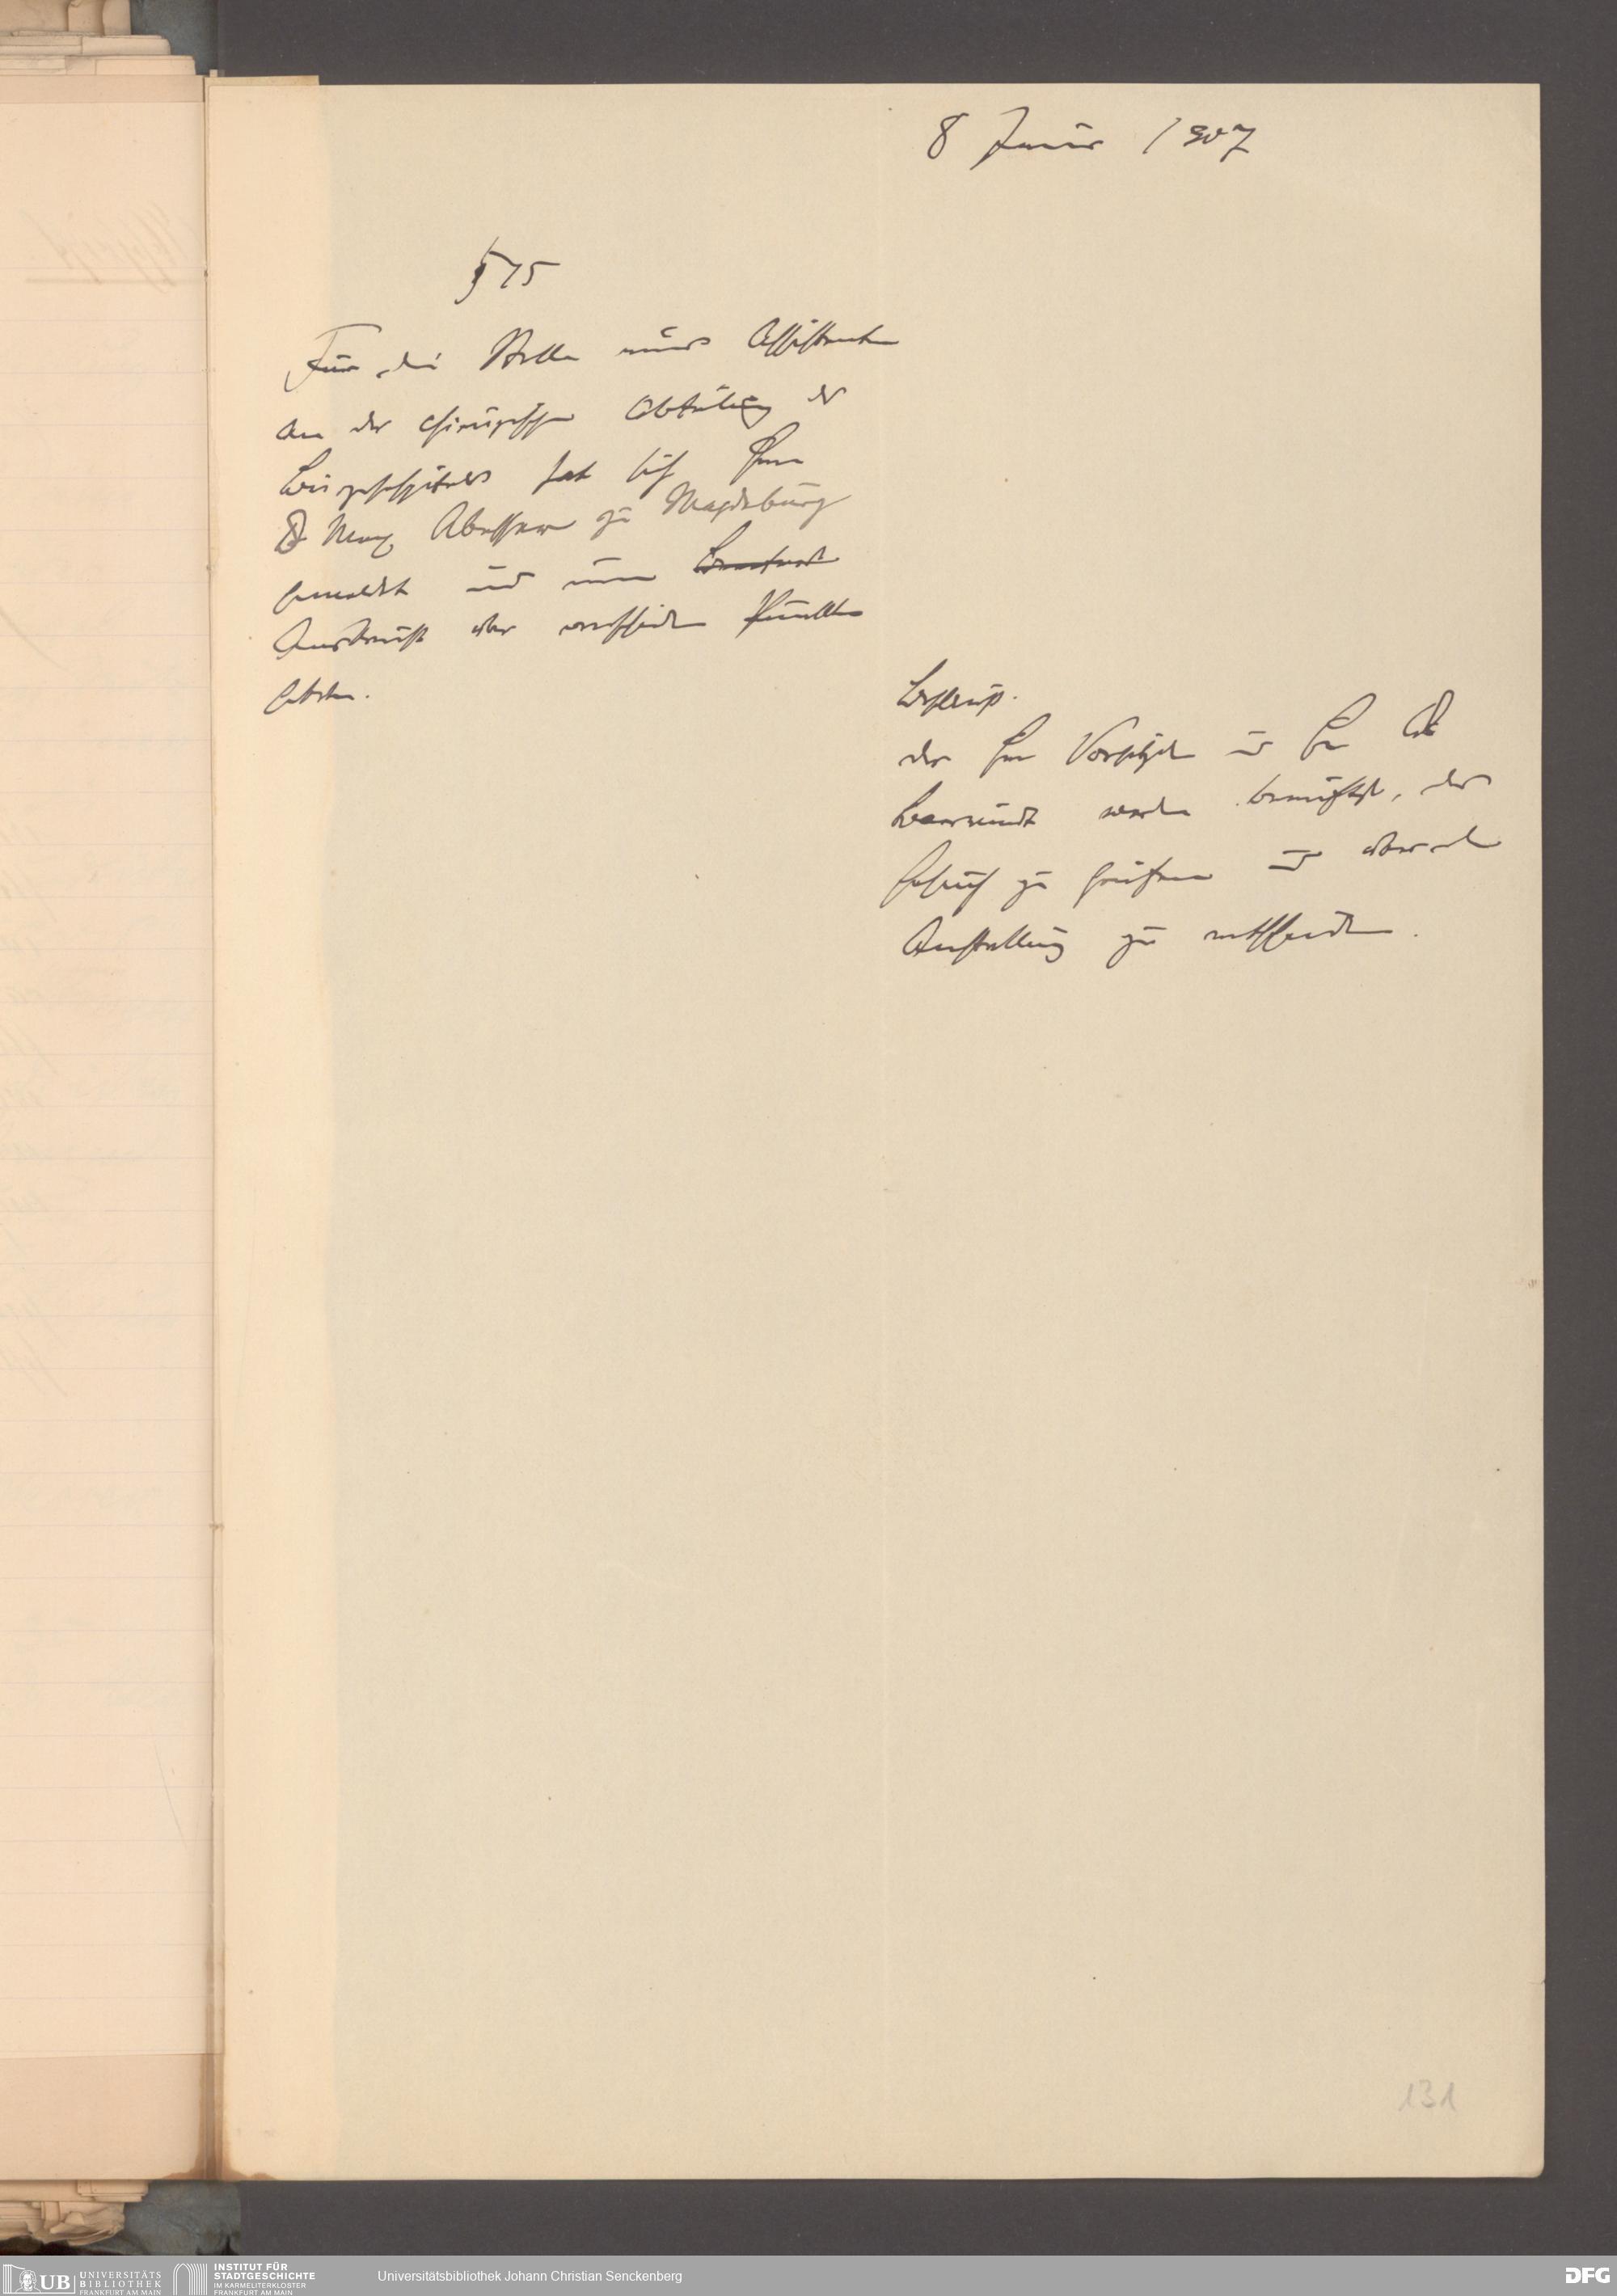 8 Januar 1907
§ 75
Für die Stelle eines Assistenten
an der chirurgischen Abteilung des
Bürgerhospitals hat sich Herr
Dr Max zu Magdeburg
gemeldet und um
Auskunft über verschiedene Punkte
gebeten.
Beschluß.
der Herr Vorsitzende und Herr
werden bemächtigt, das
Gesuch zu prüfen und über
Anstellung zu entscheiden.
131
UB UNIVERSITÄTS
BIBLIOTHEK
FRANKFURT AM MAIN
INSTITUT FÜR
STADTGESCHICHTE
IM KARMELITERKLOSTER
FRANKFURT AM MAIN
Universitätsbibliothek Johann Christian Senckenberg
DFG